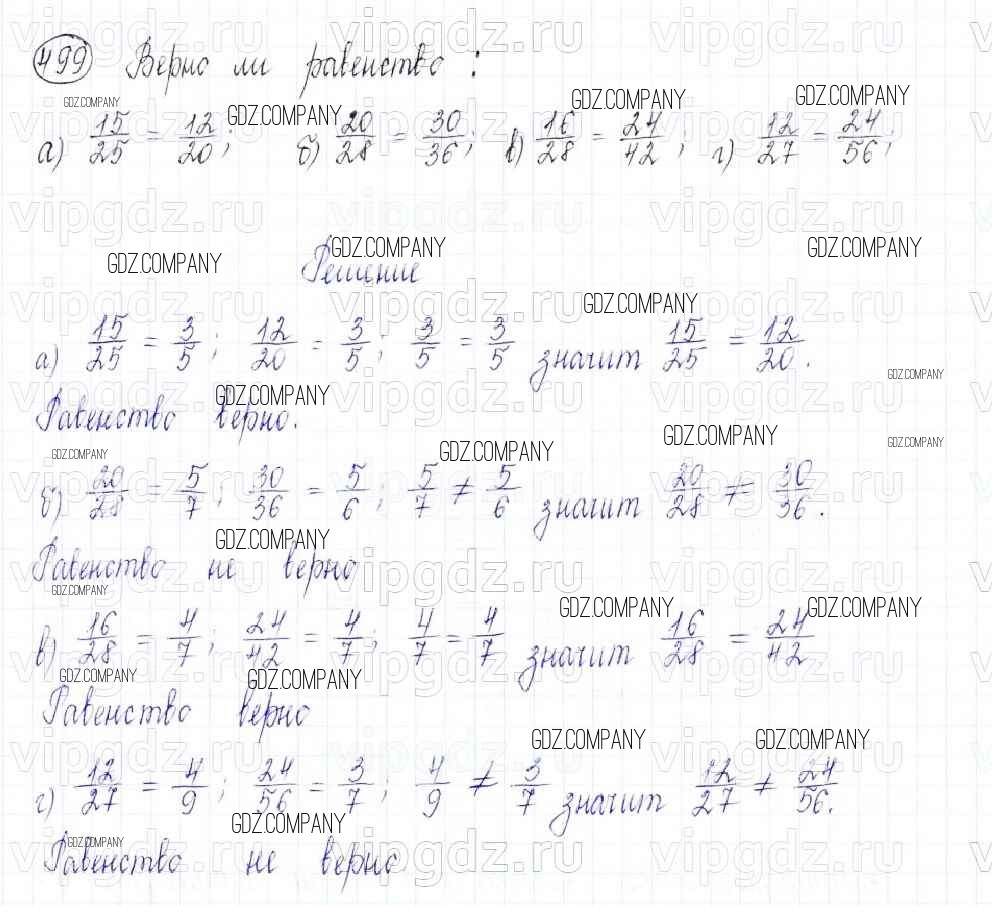 499 Верно ли равенство:
а) 15/25 = 12/20; б) 20/28 = 30/36; в) 16/28 = 24/42; г) 12/27 = 24/56;
Решение
а) 15/25 = 3/5; 12/20 = 3/5; 3/5 = 3/5 значит 15/25 = 12/20.
Равенство верно.
б) 20/28 = 5/7; 30/36 = 5/6; 5/7 ≠ 5/6 значит 20/28 ≠ 30/36.
Равенство не верно
в) 16/28 = 4/7; 24/42 = 4/7; 4/7 = 4/7 значит 16/28 = 24/42
Равенство верно
г) 12/27 = 4/9; 24/56 = 3/7; 4/9 ≠ 3/7 значит 12/27 ≠ 24/56.
Равенство не верно
GDZ.COMPANY
vipgdz.ru